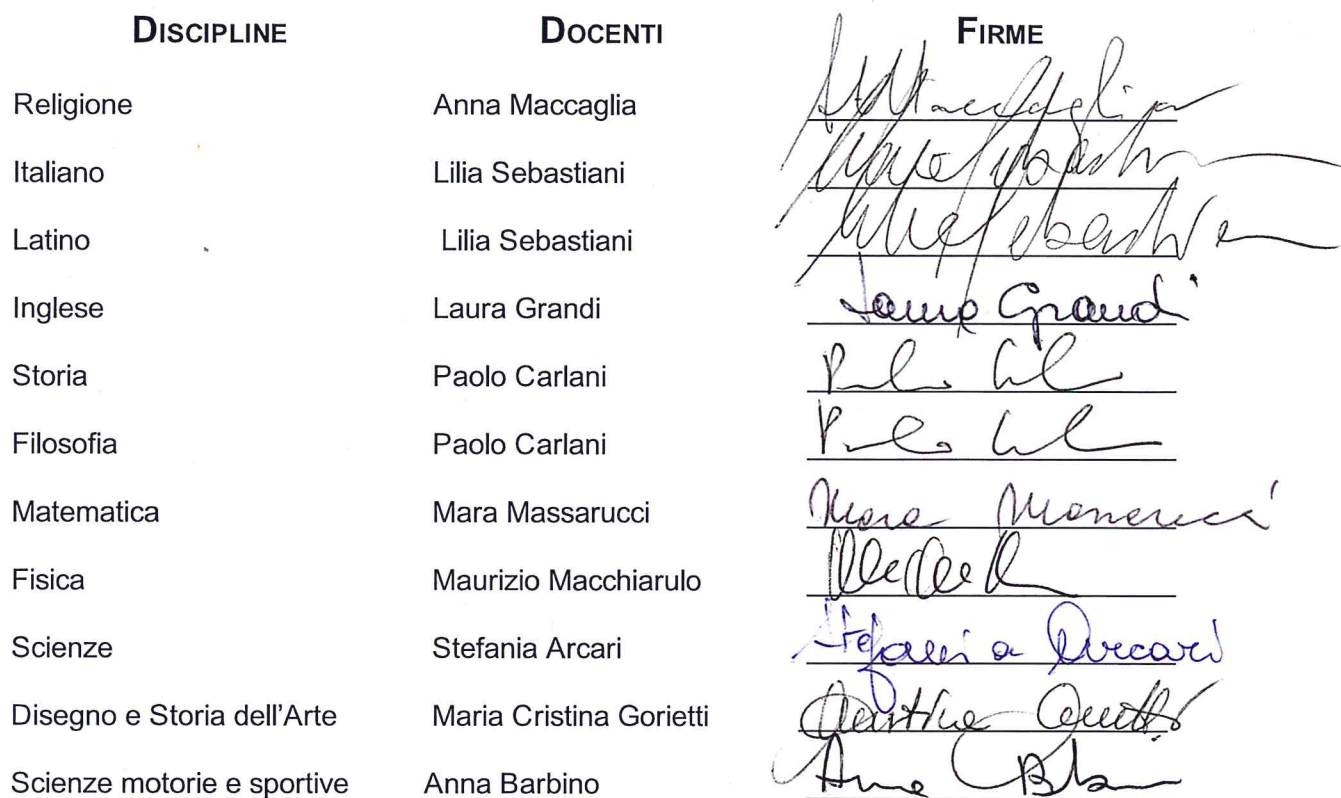 DISCIPLINE DOCENTI FIRME
Religione Anna Maccaglia A M Maccaglia
Italiano Lilia Sebastiani Lilia Sebastiani
Latino Lilia Sebastiani Lilia Sebastiani
Inglese Laura Grandi Laura Grandi
Storia Paolo Carlani
Filosofia Paolo Carlani
Matematica Mara Massarucci Mara Massarucci
Fisica Maurizio Macchiarulo
Scienze Stefania Arcari Stefania Arcari
Disegno e Storia dell'Arte Maria Cristina Gorietti
Scienze motorie e sportive Anna Barbino Anna